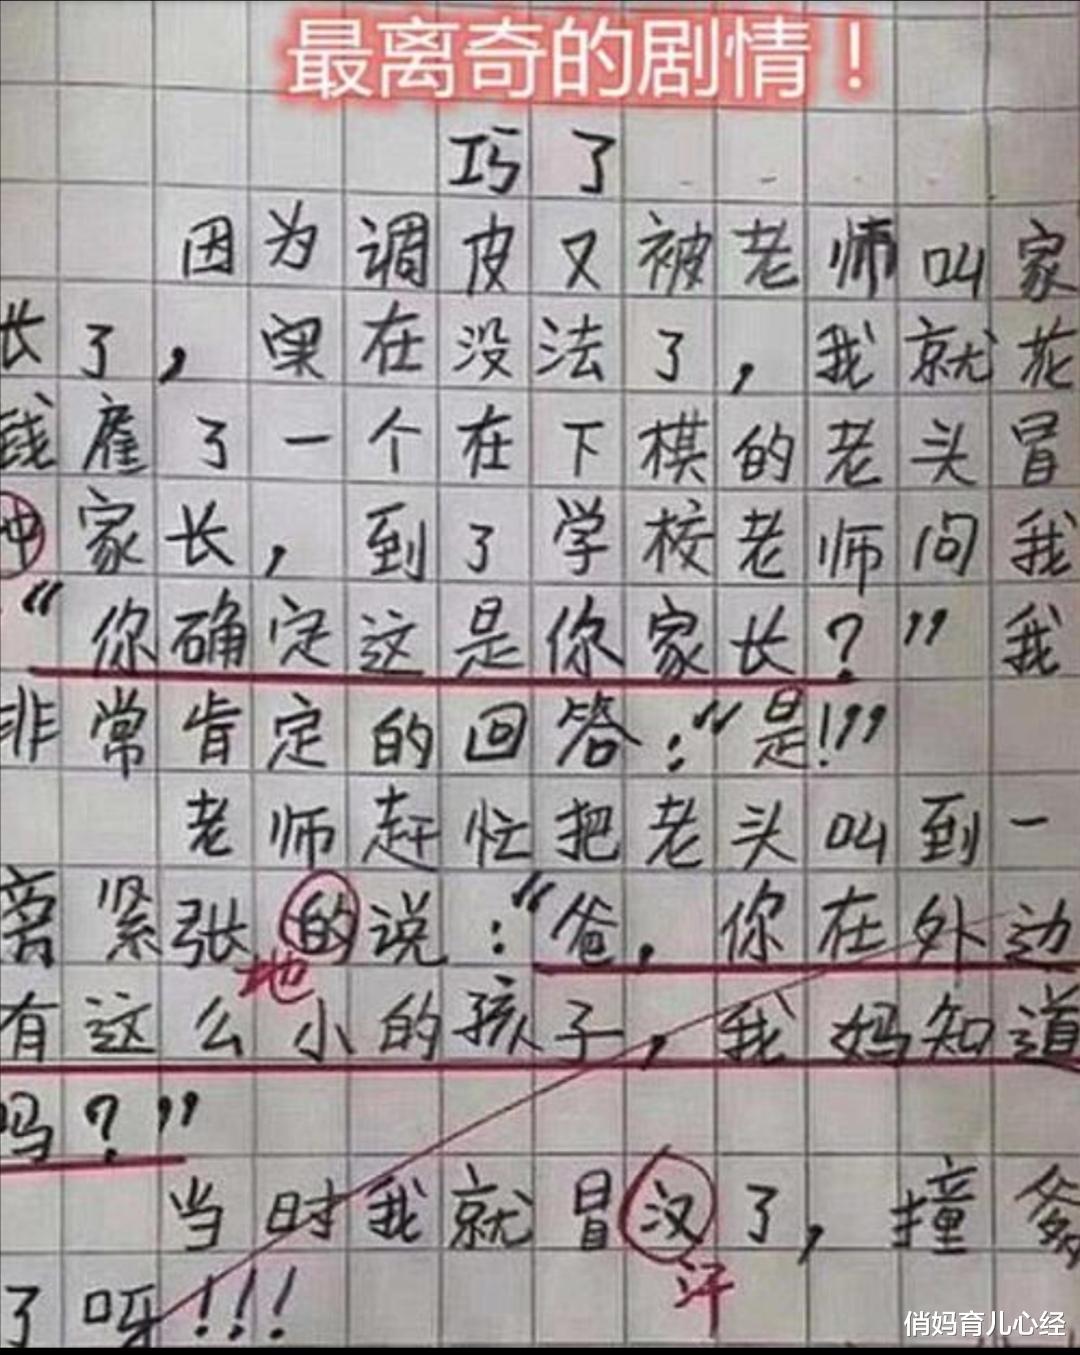 最离奇的剧情！
巧了
因为调皮又被老师叫家
长了，实在没法了，我就花
钱雇了一个在下棋的老头冒
冲家长，到了学校老师问我
“你确定这是你家长？”我
非常肯定的回答：“是！”
老师赶忙把老头叫到一
旁紧张的说：“爸，你在外边
地
有这么小的孩子，我妈知道
吗？”
当时我就冒汉了，撞爹
汗
了呀！！！
俏妈育儿心经